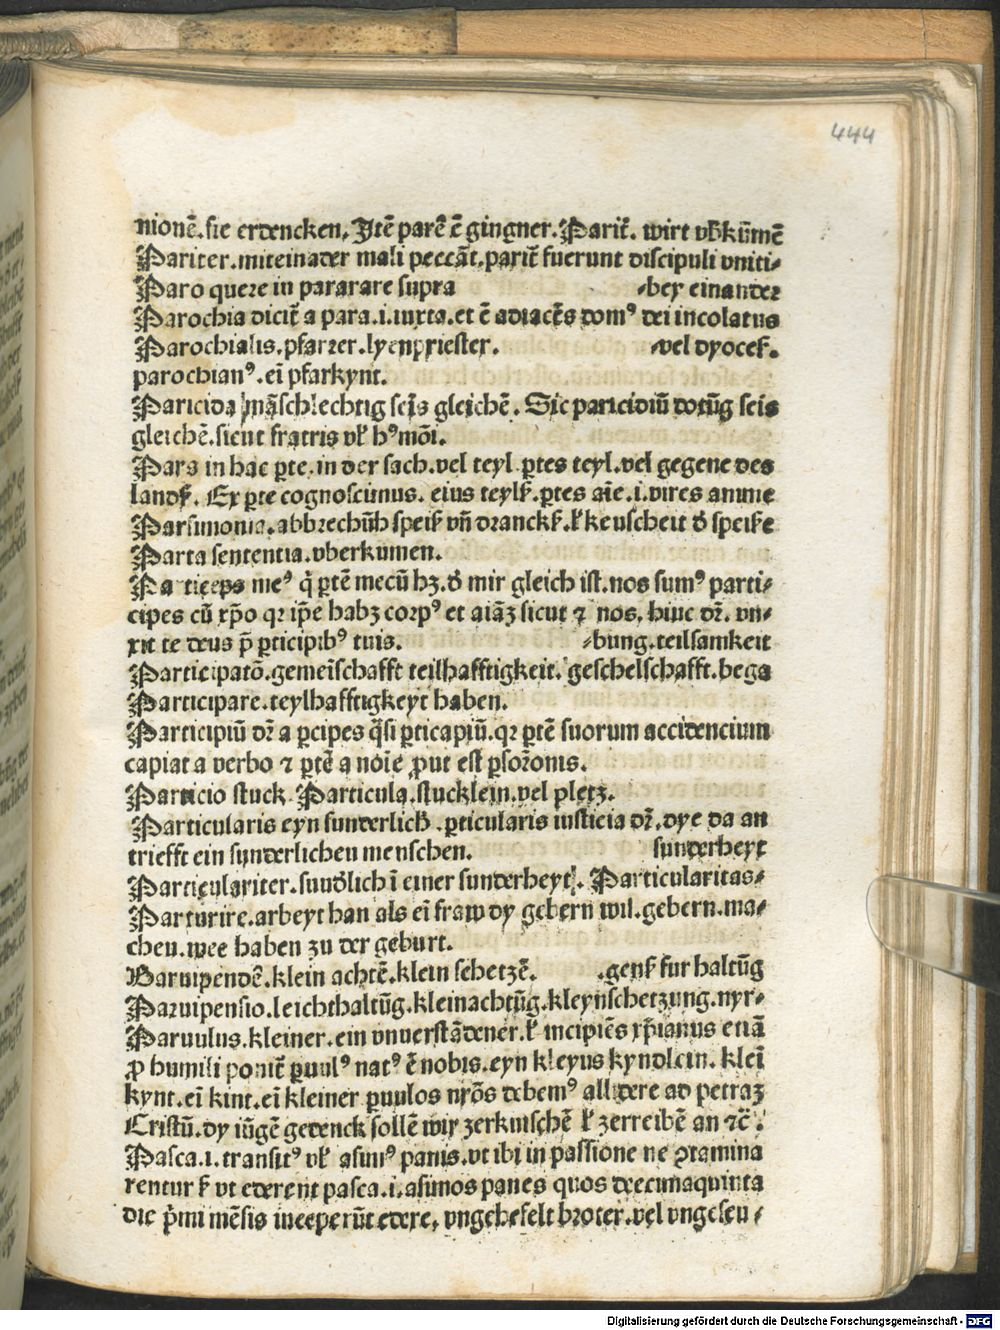 444
nionē. sie erdencken. Itē parē ē gingner. Parit̄. wirt vb̄kūmē
Pariter. miteināder mali peccāt. parit̄ fuerunt discipuli vniti-
Paro quere in pararare supra -bey einander
Parochia dicit̄ a para .i. iuxta. et ē adiacēs domꝰ dei incolatus
Parochialis. pfarrer. lyenpriester. -vel dyoces̄.
parochianꝰ. eī pfarkynt.
Paricida māschlechtig seīs gleichē. Sic paricidiū totūg seis
gleichē. sicut fratris vl̄ hꝰmōi.
Pars in hac ꝑte. in der sach. vel teyl ꝑtes teyl. vel gegene des
lands̄. Ex ꝑte cognoscimus. eius teyls̄. ꝑtes aīe .i. vires anime
Parsimonia. abbrechūh speis̄ vn̄ dranck̄. l̄ keuscheit d̄ speise
Parta sententia. vberkumen.
Particeps meꝰ q̄ ꝑtē mecū hꝫ. d̄ mir gleich ist. nos sumꝰ parti-
cipes cū xp̄o qꝛ ip̄e habꝫ corpꝰ et aīaꝫ sicut ⁊ nos. hinc dꝛ̄. vn-
xit te deus p̄ ꝑticipibꝰ tuis. -bung. teilsamkeit
Participatō. gemeīschafft teilhafftigkeit. geschelschafft. bega
Participare. teylhafftigkeyt haben.
Participiū dꝛ̄ a ꝑcipes q̄si ꝑticapiū. qꝛ ꝑtē suorum accidencium
capiat a verbo ⁊ ꝑtē a noīe ꝓut est ꝑsoꝛ̄onis.
Particio stuck. Particula. stucklein. vel pletz.
Particularis eyn sunderlich. ꝑticularis iusticia dꝛ̄. dye da an
triefft ein sunderlichen menschen. sunderheyt
Particulariter. sund̄lich ī einer sunderheyt. Particularitas-
Parturire. arbeyt han als eī fraw dy gebern wil. gebern. ma-
chen. wee haben zu der geburt.
Paruipendē. klein achtē. klein schetzē. .gens̄ fur haltūg
Paruipensio. leichthaltūg. kleinachtūg. kleynschetzung. nyr-
Paruulus. kleiner. ein vnuerstādener. l̄ incipiēs xp̄ianus etiā
ꝓ humili ponit̄ ꝑuulꝰ natꝰ ē nobis. eyn kleyns kyndlein. kleī
kynt. eī kint. eī kleiner ꝑuulos nr̄os debemꝰ allidere ad petraꝫ
Cristū. dy iūgē gedenck sollē wir zerknischē l̄ zerreibē an ⁊c̄.
Pasca .i. transitꝰ vl̄ asimꝰ panis. vt ibi in passione ne ꝯtamina
rentur s̄ vt ederent pasca .i. asimos panes quos decimaquinta
die p̄mi mēsis inceperūt edere, vngehefelt broter. vel vngeseu-
Digitalisierung gefördert durch die Deutsche Forschungsgemeinschaft - DFG